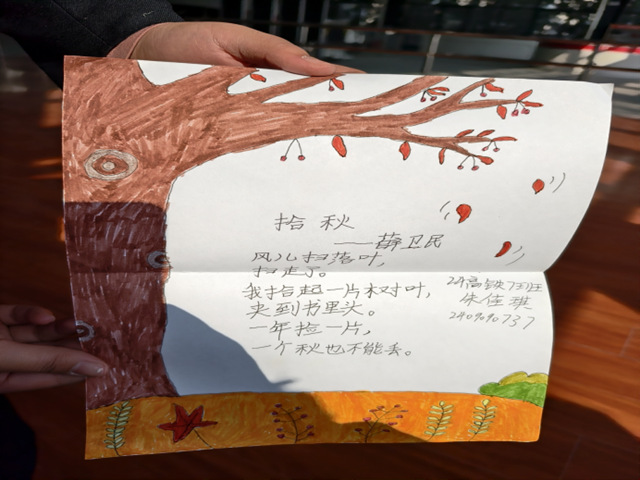 拾 秋
——薛卫民
风儿扫落叶，
扫走了。
我拾起一片树叶，
夹到书里头。
一年捡一片，
一个秋也不能丢。
24高铁7班
朱佳琪
2409090737